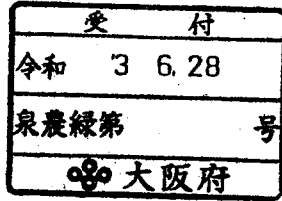 受付
令和 3 6.28
泉農緑第 号
大阪府